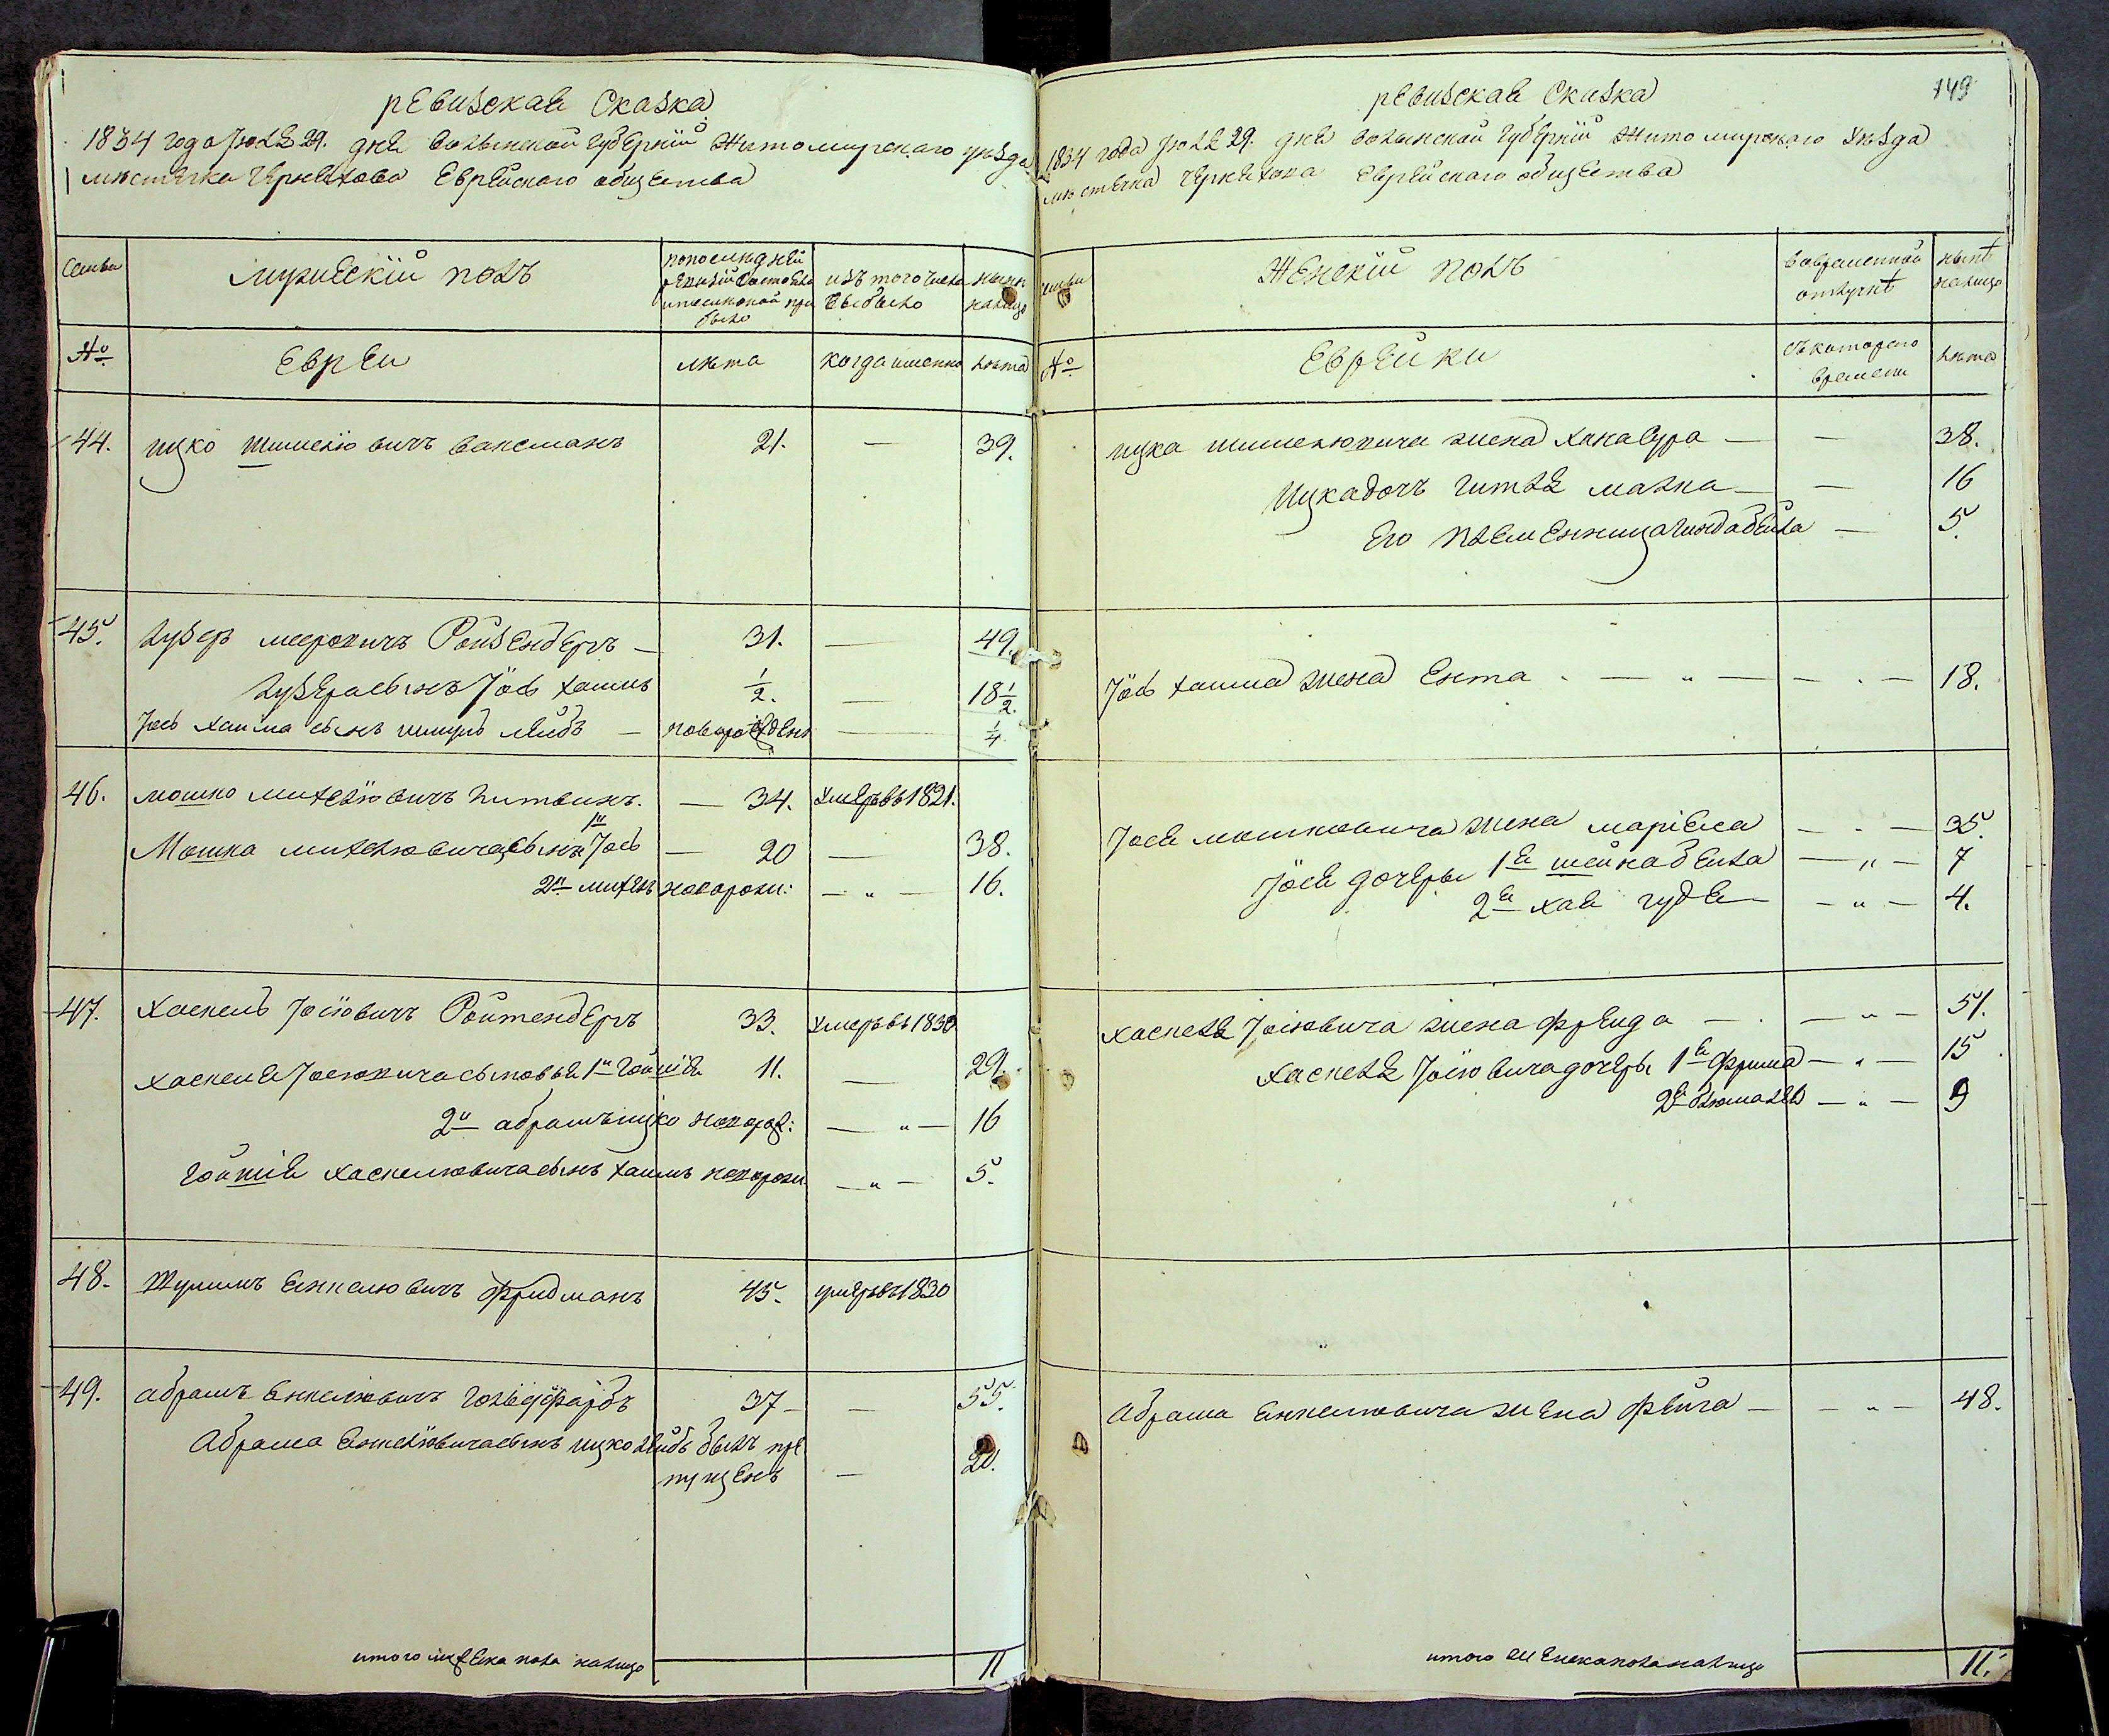 ревизская Сказка
1834 года Июля 29. дня волынской губернїи Житомирскаго уѣзда
мѣстечка Черняхова Еврейскаго общества
Семьи
мужескїй полъ
по последней ревизїи состояло и после оной прибыло
изъ того числа выбыло
нынѣ налицо
№
Евреи
лѣта
когда именно
лѣта
44. ицко Шмилїовичъ ваксманъ 21. — 39.
45. лузеръ мееровичъ Ройзенберъ — 31. — 49.
лузера сынъ Іось хаимъ 1/2. — 18 1/2.
Іось хаима сынъ шмулъ лейбъ — новорожденъ — 1/4
46. мошко михелїовичъ литвинъ. — 34. умеръ въ 1821.
Мошка михелювича сынъ 1й Іось — 20 — 38.
2й михель новорожд: — " — 16.
47. хаскель Іосїовичъ Ройтенберъ 33. умеръ въ 1830
хаскеля Іосювича сыновья 1й 11. — 29.
2й абрамъ ицко новорожд: — " — 16
хаскелювича сынъ хаимъ новорожд. — " — 5.
48. Шулимъ Янкелювичъ фридманъ 45. умеръ въ 1830
49. абрамъ Янкелювичъ гольдфарбъ 37 — — 55.
Абрама Янкелювича сынъ ицко лейбъ былъ пропущенъ — 20.
итого мужеска пола налицо 11
149
ревизская Сказка
1834 года Июля 29. дня волынской губернїи Житомирскаго уѣзда
мѣстечка Черняхова Еврейскаго общества
семьи
Женскїй полъ
во временной отлучкѣ
нынѣ налицо
№
Еврейки
съ котораго времени
лѣта
ицка шмилювича жена хана сура — — 38.
ицка дочь гитля малка — — 16
Его племенница гинда бейла — 5.
Іось хаима жена Ента — " — 18.
Іося мошковича жена марїяса — " — 35.
Іося дочеры 1я шейна бейла — " — 7
2я хая гудя — " — 4.
хаскеля Іосювича жена фрейда — " — 51.
хаскеля Іосїовича дочеры 1я фрима — " — 15
2я блюма — " — 9
Абрама Янкелювича жена фейга — — " — 48.
итого женска пола налицо 11.